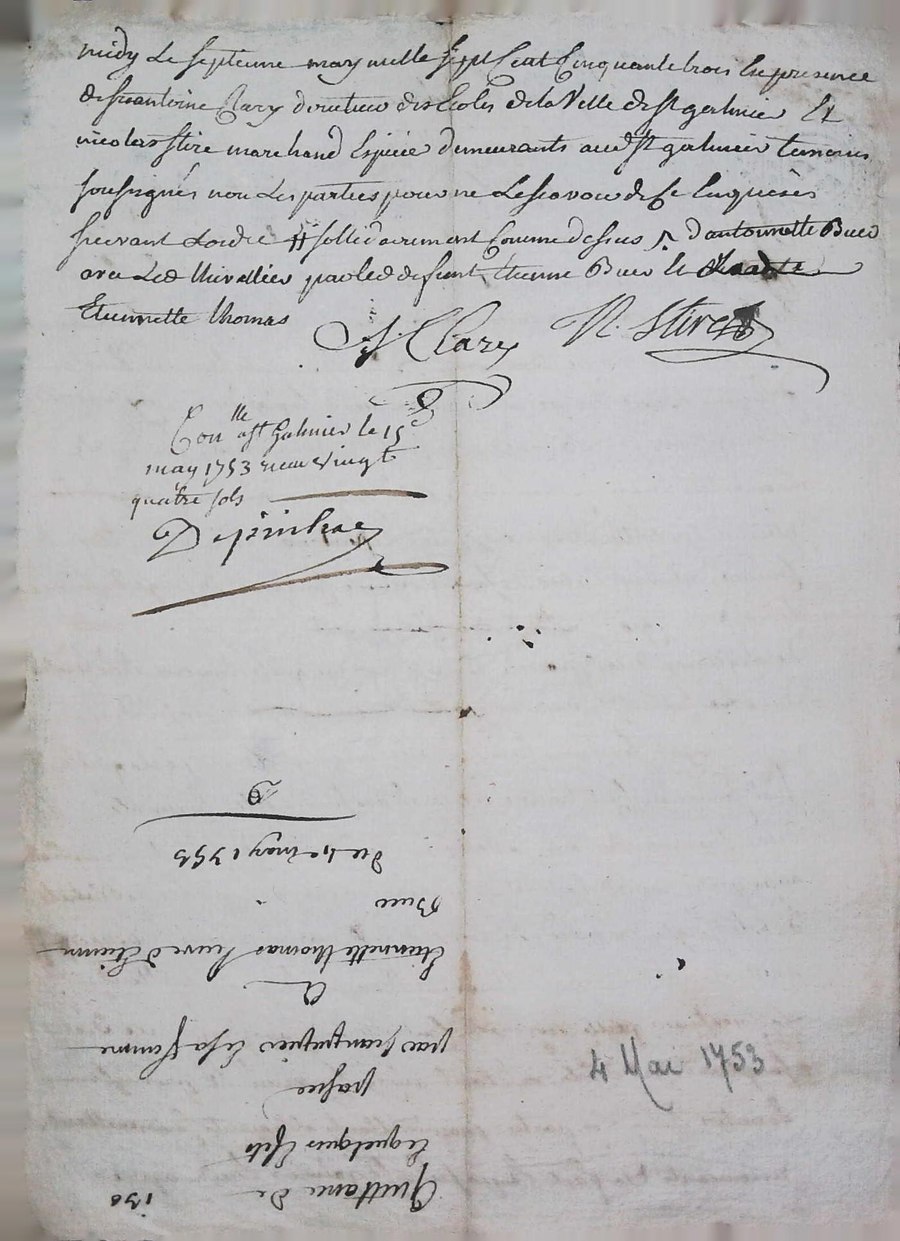 midy le septieme may mille sept Cent Cinquante trois En presence
de Sr antoine Clary directeur des Ecoles de la Ville de St galmier Et
nicolas Stire marchand Epicié demeurants aud St galmier temoins
soussignés non Les parties pour ne Le scavoir de Ce Enquis
suivant Lordre sollidairement Comme dessus d'antoinette Buer
avec Led Chivallier par led deffunt Etienne Buer
Etiennette thomas
A. Clary N. Stire
Conlle a St Galmier le 15e
may 1753 receu vingt
quatre sols
130
Quittance de
quelques Effets
passée
par et sa femme
A
Etiennette thomas veuve d'Etienne
Buer
du 4e may 1753
4 Mai 1753